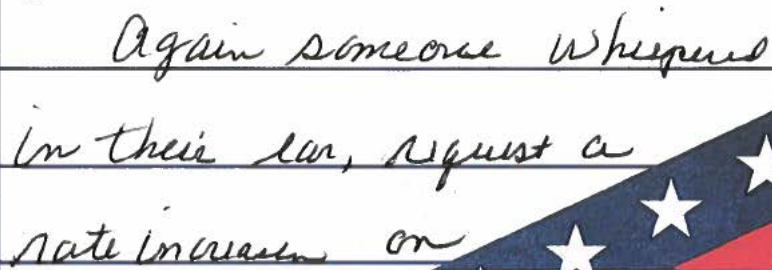 Again someone whispered
in their ear, request a
rate increase on